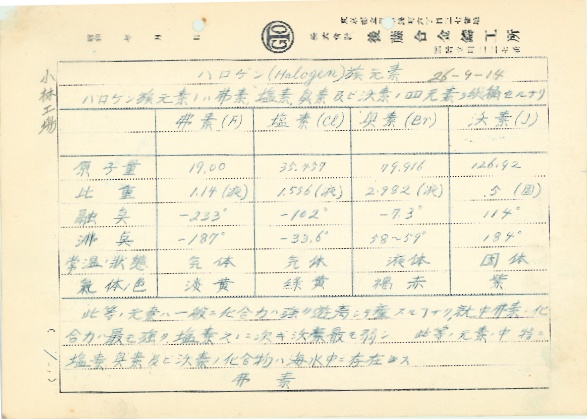 昭和 年 月 日
GTO
株式会社 後藤合金鑄工所
小林工場
ハロゲン(Halogen)族元素 26-9-14
ハロゲン族元素ハ弗素, 塩素, 臭素及ビ沃素ノ四元素ヲ総稱セルナリ
弗素(F) 塩素(Cl) 臭素(Br) 沃素(J)
原子量 19.00 35.457 79.916 126.92
比重 1.14(液) 1.556(液) 2.982(液) 5(固)
融臭 -233° -102° -7.3° 114°
沸臭 -187° -33.6° 58~59° 184°
常温ノ狀態 气体 气体 液体 固体
氣体ノ色 淡黄 緑黄 褐赤 紫
此等ノ元素ハ一般ニ化合力ハ強ク遊局シテ産スルナク, 就中弗素ノ化
合力ハ最モ強ク 塩素之レニ次ギ沃素最モ弱シ 此等ノ元素ノ中特ニ
塩素臭素及ビ沃素ノ化合物ハ海水中ニ存在ス
弗素